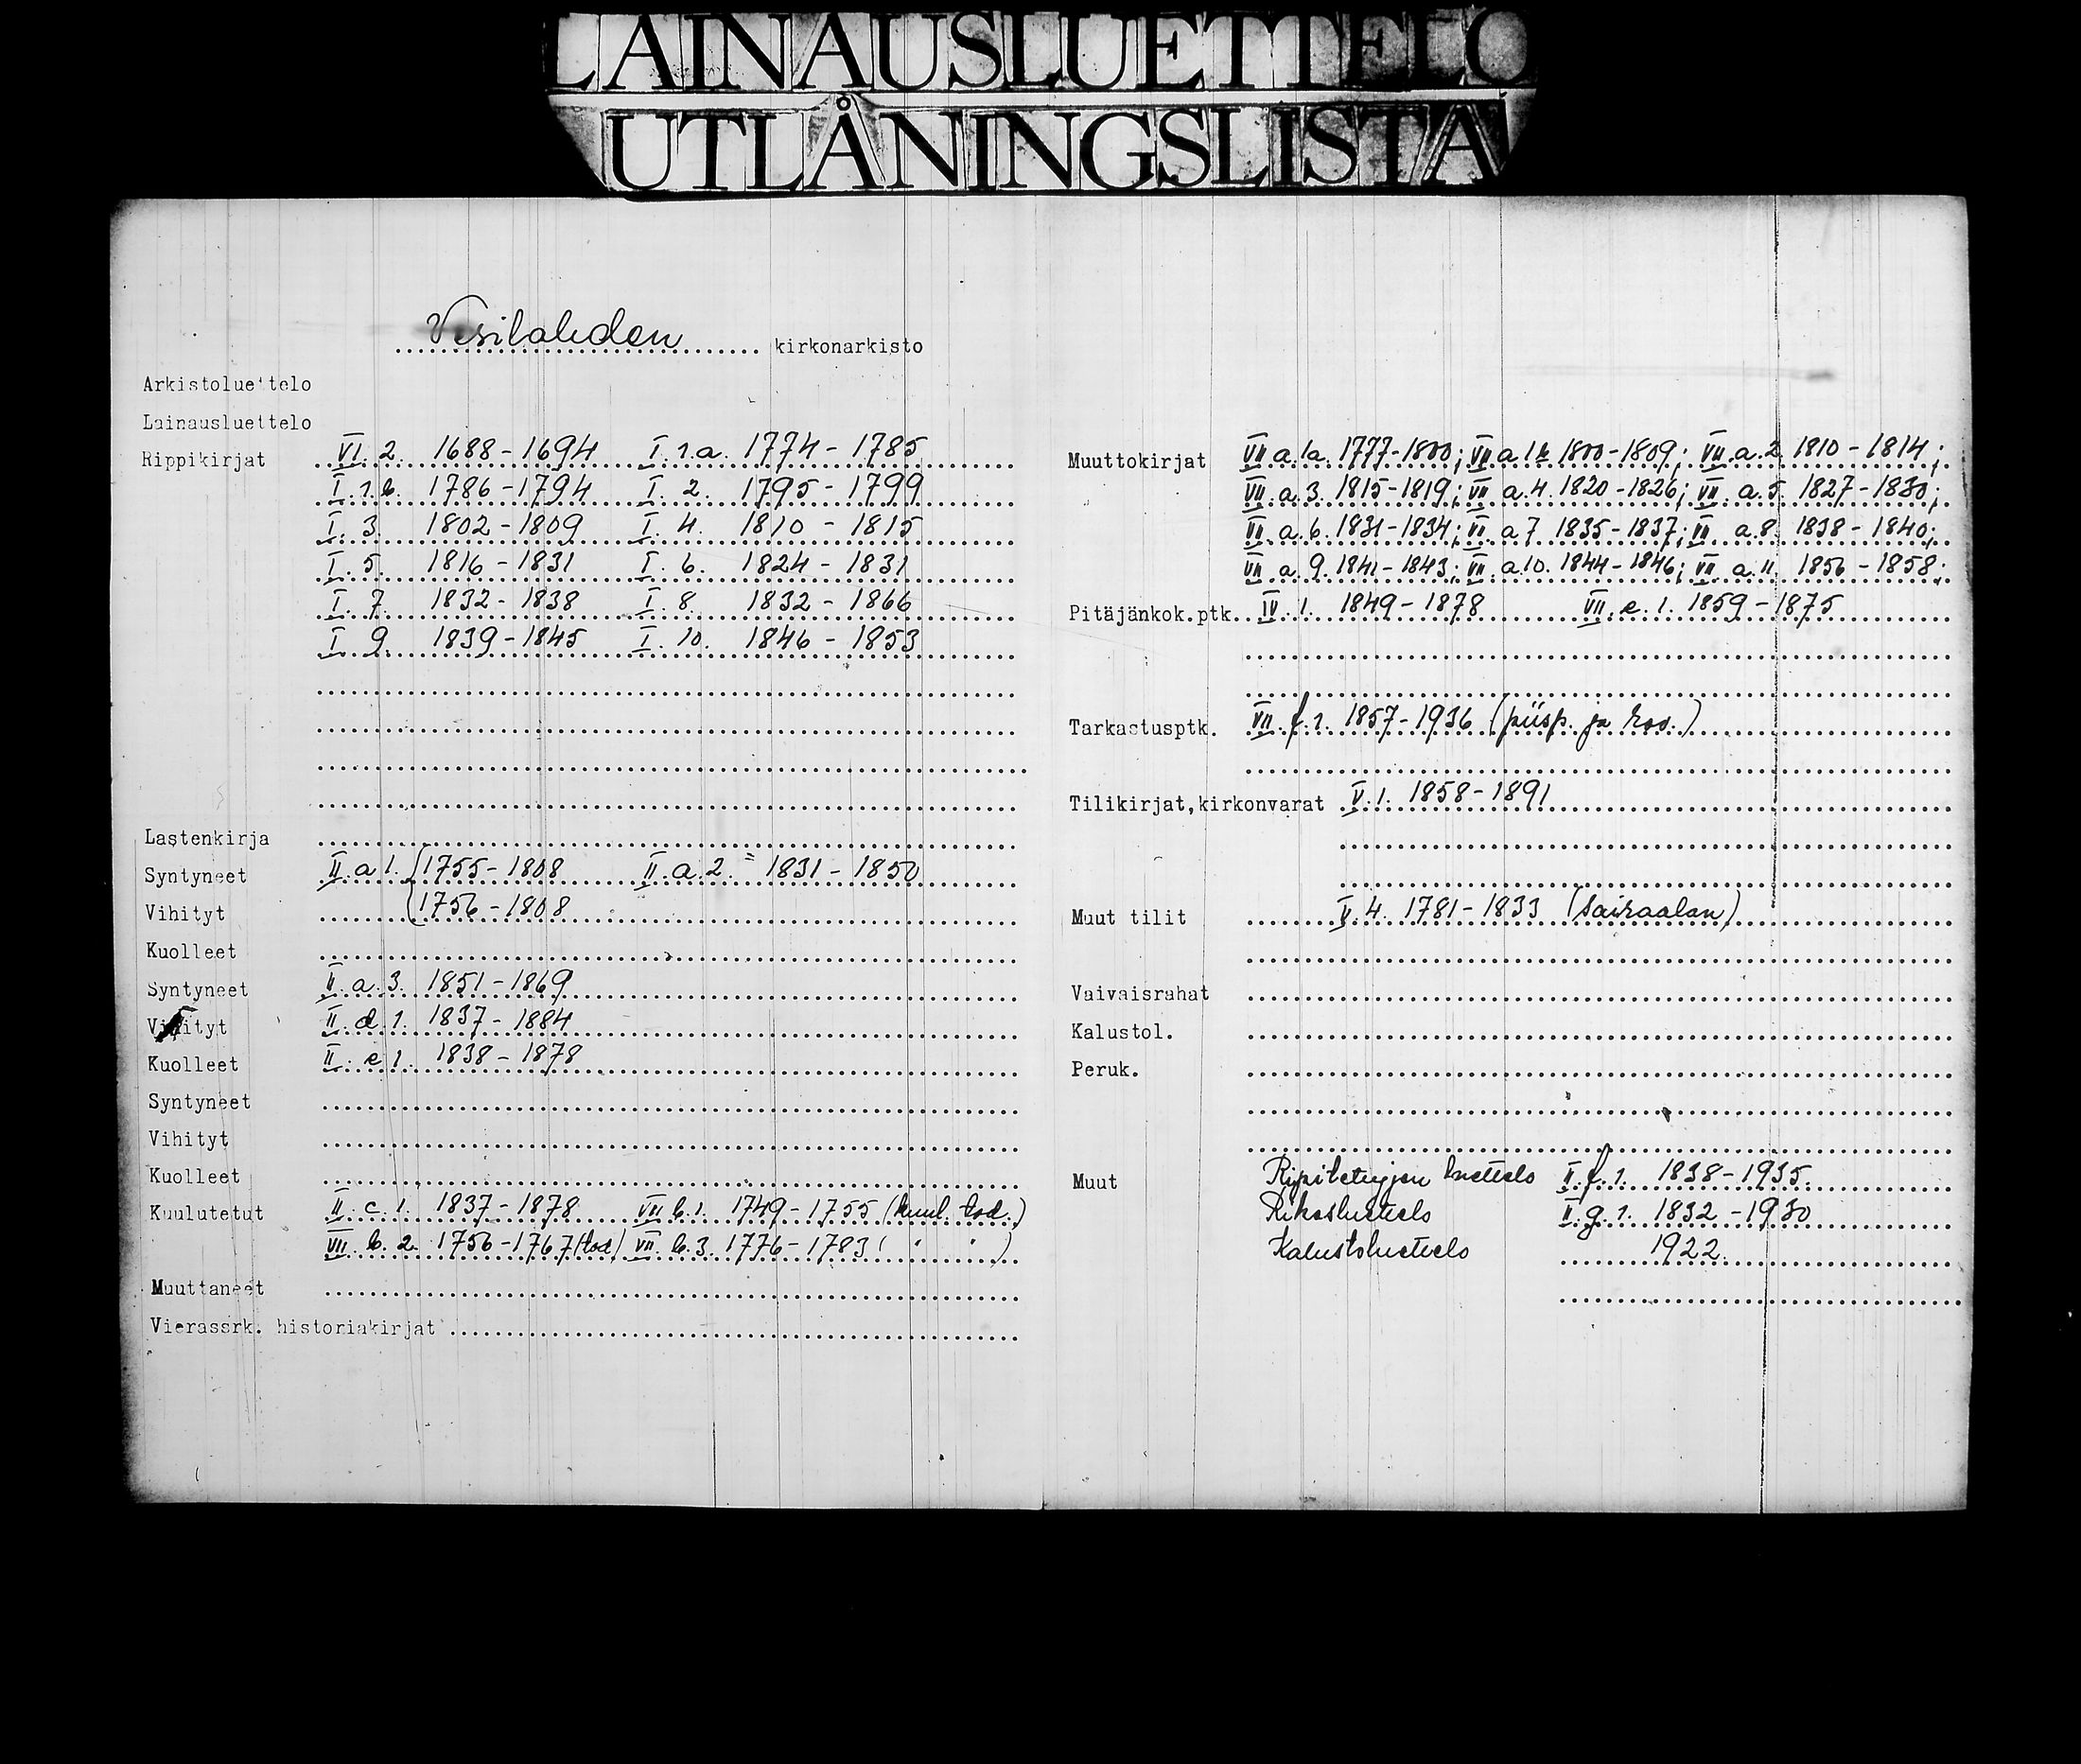 LAINAUSLUETTELO
UTLÅNINGSLISTA
Vesilahden kirkonarkisto
Arkistoluettelo
Lainausluettelo
Rippikirjat VI. 2. 1688-1694 I. 1.a. 1774-1785
I. 1.b. 1786-1794 I. 2. 1795-1799
I. 3. 1802-1809 I. 4. 1810-1815
I. 5. 1816-1831 I. 6. 1824-1831
I. 7. 1832-1838 I. 8. 1832-1866
I. 9. 1839-1845 I. 10. 1846-1853
Lastenkirja
Syntyneet II. a 1. 1755-1808 II. a. 2. 1831-1850
Vihityt 1756-1808
Kuolleet
Syntyneet II. a. 3. 1851-1869
Vihityt II. d. 1. 1837-1884
Kuolleet II. e 1. 1838-1878
Syntyneet
Vihityt
Kuolleet
Kuulutetut II. c. 1. 1837-1878 VII b. 1. 1749-1755 (kuul. tod.)
VII. b. 2. 1756-1767 (tod) VII. b. 3. 1776-1783 ( " " )
Muuttaneet
Vierassrk. historiakirjat
Muuttokirjat VII a. 1a. 1777-1800; VII a 1b 1800-1809; VII. a. 2. 1810-1814;
VII. a. 3. 1815-1819; VII. a. 4. 1820-1826; VII. a. 5. 1827-1830;
VII. a. 6. 1831-1834; VII. a 7 1835-1837; VII. a. 8. 1838-1840;
VII. a. 9. 1841-1843; VII. a. 10. 1844-1846; VII. a. 11. 1856-1858;
Pitäjänkok.ptk. IV. 1. 1849-1878 VII. e. 1. 1859-1875
Tarkastusptk. VII. f. 1. 1857-1936 (piisp. ja rov.)
Tilikirjat,kirkonvarat V. 1. 1858-1891
Muut tilit V. 4. 1781-1833 (Sairaalan)
Vaivaisrahat
Kalustol.
Peruk.
Muut luettelo II. f. 1. 1838-1935.
Rikosluettelo II. g. 1. 1832-1930
Kalustoluettelo 1922.